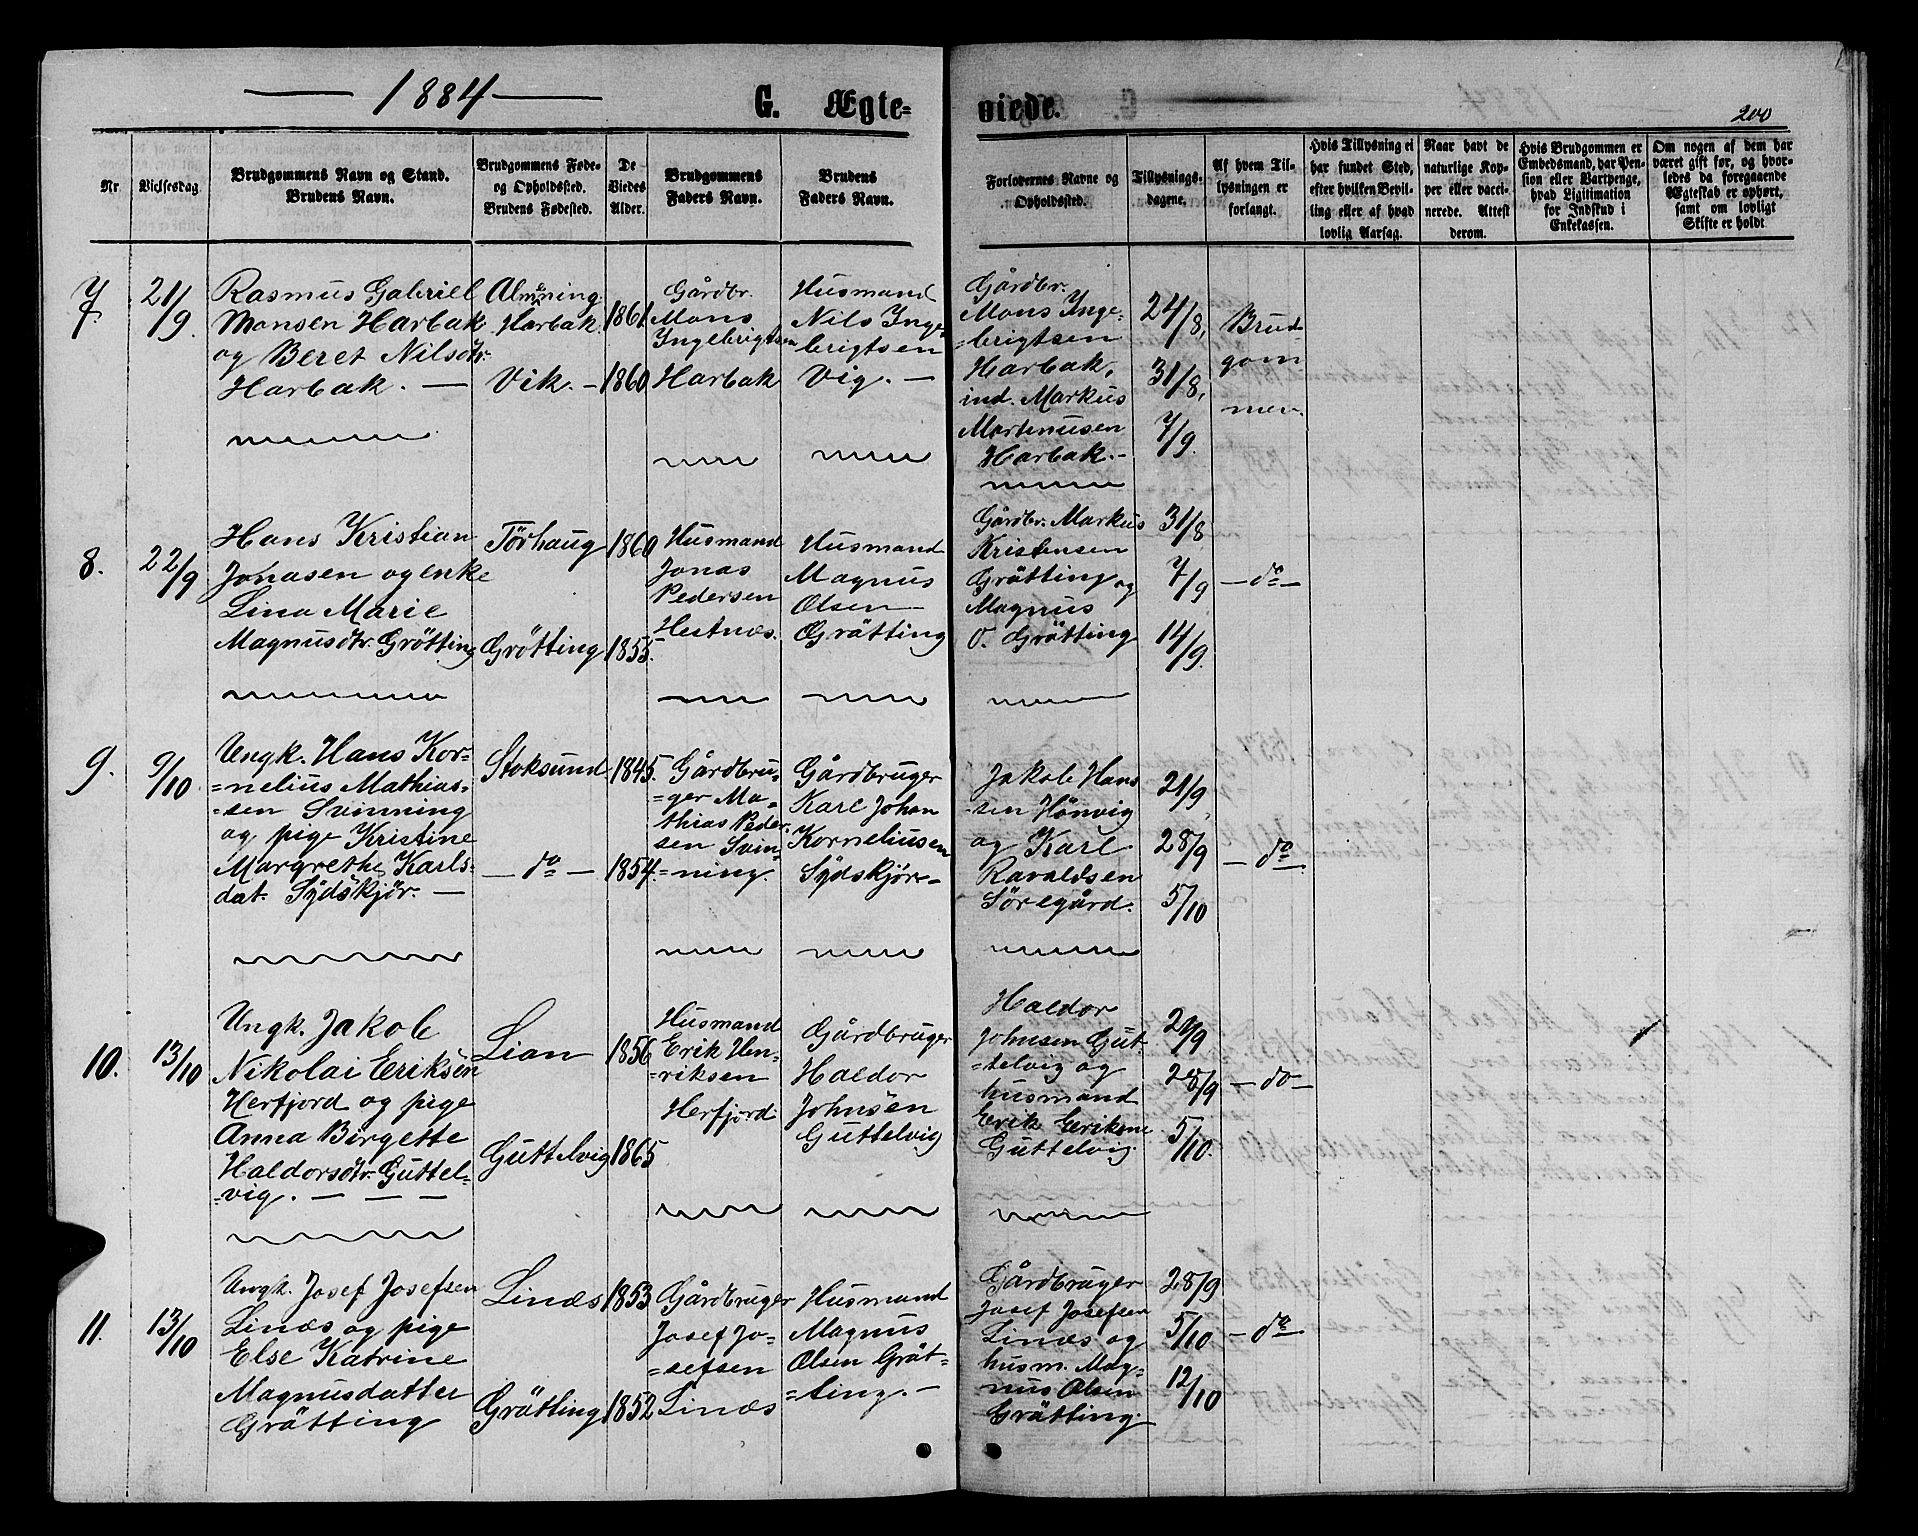 1884
G. Ægte=
viede.
200
Nr.
Vielsesdag.
Brudgommens Navn og Stand.
Brudens Navn.
Brudgommens Føde=
og Opholdssted.
Brudens Fødested.
De
Viedes
Alder.
Brudgommens
Faders Navn.
Brudens
Faders Navn.
Forlovernes Navne og
Opholdssted.
Tillysnings=
dagene.
Af hvem Til=
lysningen er
forlangt.
Hvis Tillysning ei
har fundet Sted,
efter hvilken Bevil=
ling eller af hvad
lovlig Aarsag.
Naar havt de
naturlige Kop=
per eller vacci=
nerede. Attest
derom.
Hvis Brudgommen er
Embedsmand, har Pen=
sion eller Vartpenge,
hvad Legitimation
for Indskud i
Enkekassen.
Om nogen af dem har
været gift før, og hvor=
ledes da foregaaende
Ægteskab er ophørt,
samt om lovligt
Skifte er holdt
7.
21/9
Rasmus Gabriel
Monsen Harbak
og Beret Nilsdtr.
Harbak. —
Almåning
Harbak.
Vik. —
1861
1860
Gårdbr.
Mons
Ingebrigtsen
Harbak
Husmand
Nils Inge=
brigtsen
Vig. —
Gårdbr.
Mons Inge=
=brigtsen
Harbak,
ind. Markus
Martinusen
Harbak. —
24/8,
31/8,
7/9.
Brud=
gom
men.
8.
22/9
Hans Kristian
Jonasen og enke
Lina Marie
Magnusdtr. Grötting
Tørhaug
Grötting
1860
1855.
Husmand
Jonas
Pedersen
Hestnæs.
Husmand
Magnus
Olsen
Gråtting
Gårdbr. Markus
Kristensen
Gråtting og
Magnus
O. Gråtting
31/8
7/9
14/9.
— do —
9.
9/10
Ungk. Hans Kor=
=nelius Mathias=
=sen Svinning
og pige Kristine
Margrethe Karls=
dat. Sydskjør. —
Stoksund
— do —
1845.
1854.
Gårdbru=
=ger Ma=
thias Peder=
sen Svin=
=ning.
Gårdbruger
Karl Johan
Kornelius­en
Sydskjør —
Jakob Hans
=sen Hönvig
og Karl
Ravaldsen
Sörlgård.
21/9,
28/9
5/10
— do —
10.
13/10
Ungk. Jakob
Nikolai Eriksen
Herfjord og pige
Anna Birgette
Haldorsdtr. Guttel=
=vig. — — —
Lian
Guttelvig
1856
1865
Husmand
Erik Hen=
=riksen
Herfjord.
Gårdbruger
Haldor
Johnsen
Guttelvig
Haldor
Johnsen Gut=
=telvig og
husmand
Erik Eriksen
Guttelvig.
21/9
28/9
5/10.
— do —
11.
13/10
Ungk. Josef Josefsen
Linæs og pige
Else Katrine
Magnusdatter
Gråtting
Linæs
Gråtting
1853
1852
Gårdbruger
Josef Jo=
=sefsen
Linæs
Husmand
Magnus
Olsen Gråt=
=ting. —
Gårdbruger
Josef Josefsen
Linæs og
husm. Mag=
=nus Olsen
Gråtting.
28/9
5/10
12/10
— do —